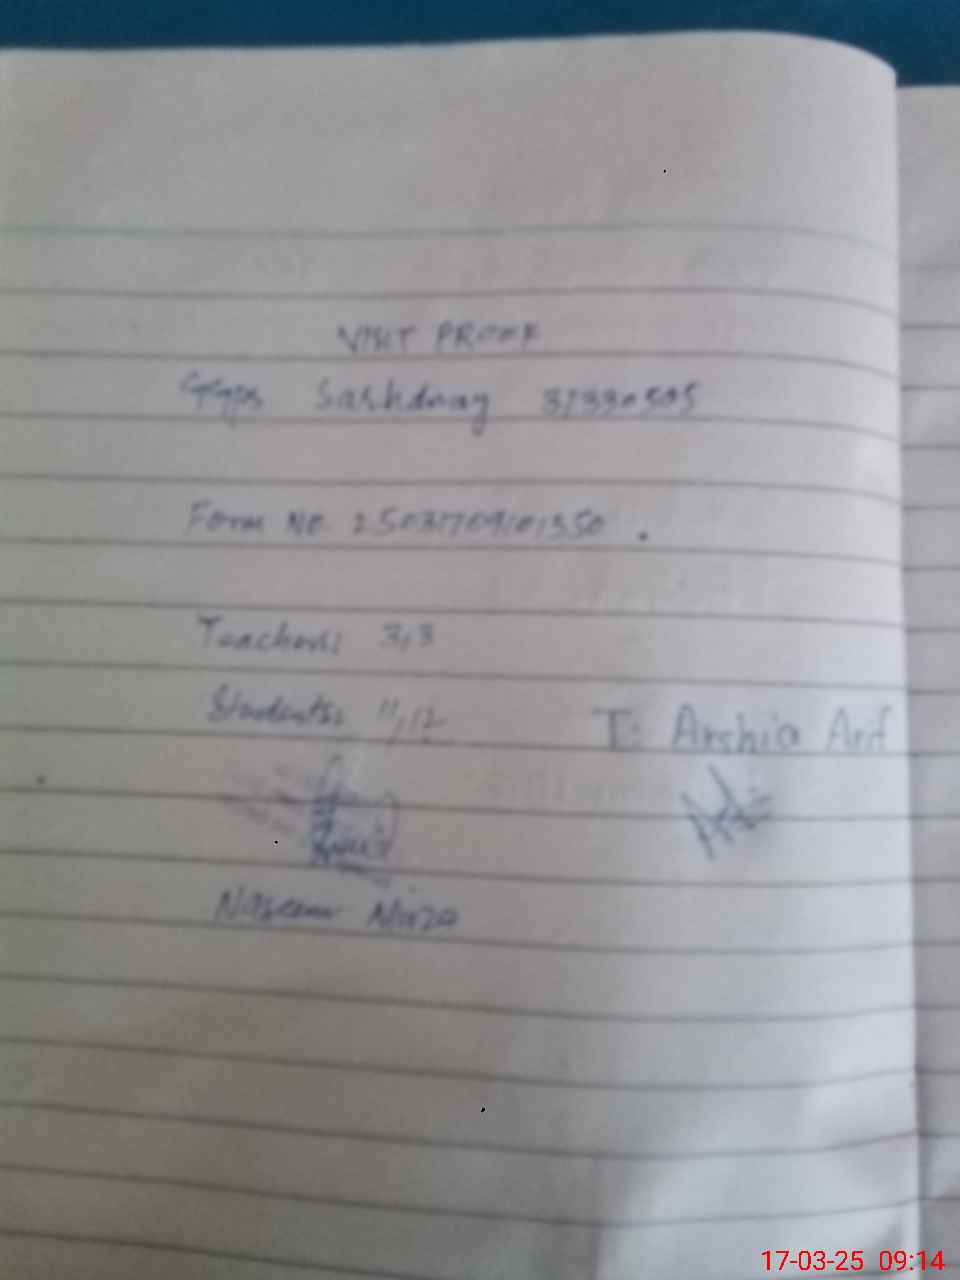 VISIT PROOF
GGPS Sashdnay 37330505
Form No. 25031709101350.
Teachers: 3,3
Students: 11,12
T: Arshia Arif
Naseem Mirza
17-03-25 09:14